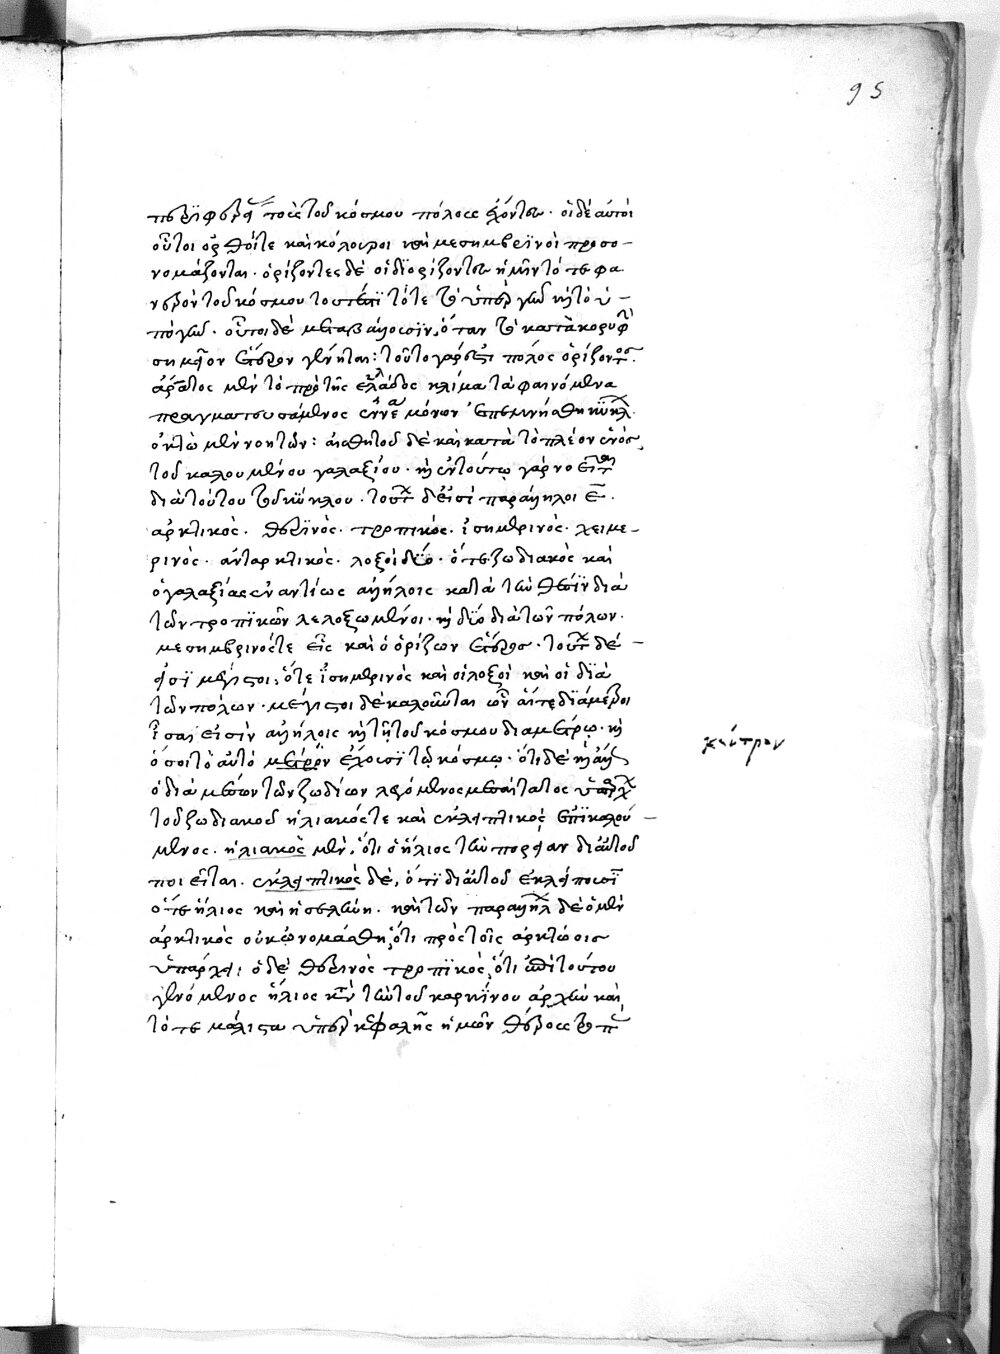 95
περιφερ τοὺς τοῦ κόσμου πόλους ἔχοντες. οἱ δὲ αὐτοὶ
οὗτοι ὀρθοί τε καὶ κόλουροι καὶ μεσημβρινοὶ προσο-
νομάζονται. ὁρίζοντες δὲ οἱ διορίζοντες ἡμῖν τό τε φα
νερὸν τοῦ κόσμου τουτέστι τό τε ὑπὲρ γῆν καὶ τὸ ὑ-
πὸ γῆν. οὗτοι δὲ μεταβάλλουσιν, ὅταν τὸ κατὰ κορυφὴν
σημεῖον ἕτερον γένηται: τοῦτο γάρ ἐστι πόλος ὁρίζοντος.
ἄρατος μὲν τὸ πρὸς τῆς ἑλλάδος κλίμα τὰ φαινόμενα
πραγματευσάμενος ἐννέα μόνων ἐπεμνήσθη κύκλ
ὀκτὼ μὲν νοητῶν: αἰσθητοῦ δὲ καὶ κατὰ τὸ πλέον ἑνὸς
τοῦ καλουμένου γαλαξίου. καὶ ἐν τούτῳ γὰρ νοεῖται
διὰ τούτου τοῦ κύκλου. τούτων δέ εἰσι παράλληλοι ε.
ἀρκτικὸς. θερινὸς. τροπικὸς. ἰσημερινὸς. χειμε-
ρινὸς. ἀνταρκτικὸς. λοξοὶ δύο. ὅ τε ζωδιακὸς καὶ
ὁ γαλαξίας ἐναντίως ἀλλήλοις κατὰ τὴν θέσιν διὰ
τῶν τροπικῶν λελοξωμένοι. καὶ δύο διὰ τῶν πόλων.
μεσημβρινός τε εἷς καὶ ὁ ὁρίζων ἕτερος. τούτων δέ-
εἰσι μέγιστοι, ὅ τε ἰσημερινὸς καὶ οἱ λοξοὶ καὶ οἱ διὰ
τῶν πόλων. μέγιστοι δὲ καλοῦνται ὧν αἵ τε διάμετροι
ἴσαι εἰσὶν ἀλλήλοις καὶ τῇ τοῦ κόσμου διαμέτρῳ. καὶ
ὅσοι τὸ αὐτὸ μέτρον ἔχουσι τῷ κόσμῳ. ὅτι δὲ καὶ
κέντρον
ὁ διὰ μέσων τῶν ζωδίων λεγόμενος μεσαίτατος ὑπάρχ
τοῦ ζωδιακοῦ ἡλιακός τε καὶ ἐκλειπτικὸς ἐπικαλού-
μενος. ἡλιακὸς μὲν, ὅτι ὁ ἥλιος τὴν πορείαν δι αὐτοῦ
ποιεῖται. ἐκλειπτικὸς δὲ, ὅτι δι αὐτοῦ ἐκλείπουσι
ὅ τε ἥλιος καὶ ἡ σελήνη. καὶ τῶν παραλλήλ δὲ ὁ μὲν
ἀρκτικὸς οὐκ ὠνομάσθη, ὅτι πρὸς τοῖς ἀρκτώοις
ὑπάρχει: ὁ δὲ θερινὸς τροπικὸς, ὅτι ἐπὶ τούτου
γενόμενος ἥλιος κατὰ τὴν τοῦ καρκίνου ἀρχὴν καὶ
τό τε μάλιστα ὑπὲρ κεφαλῆς ἡμῶν θέρους